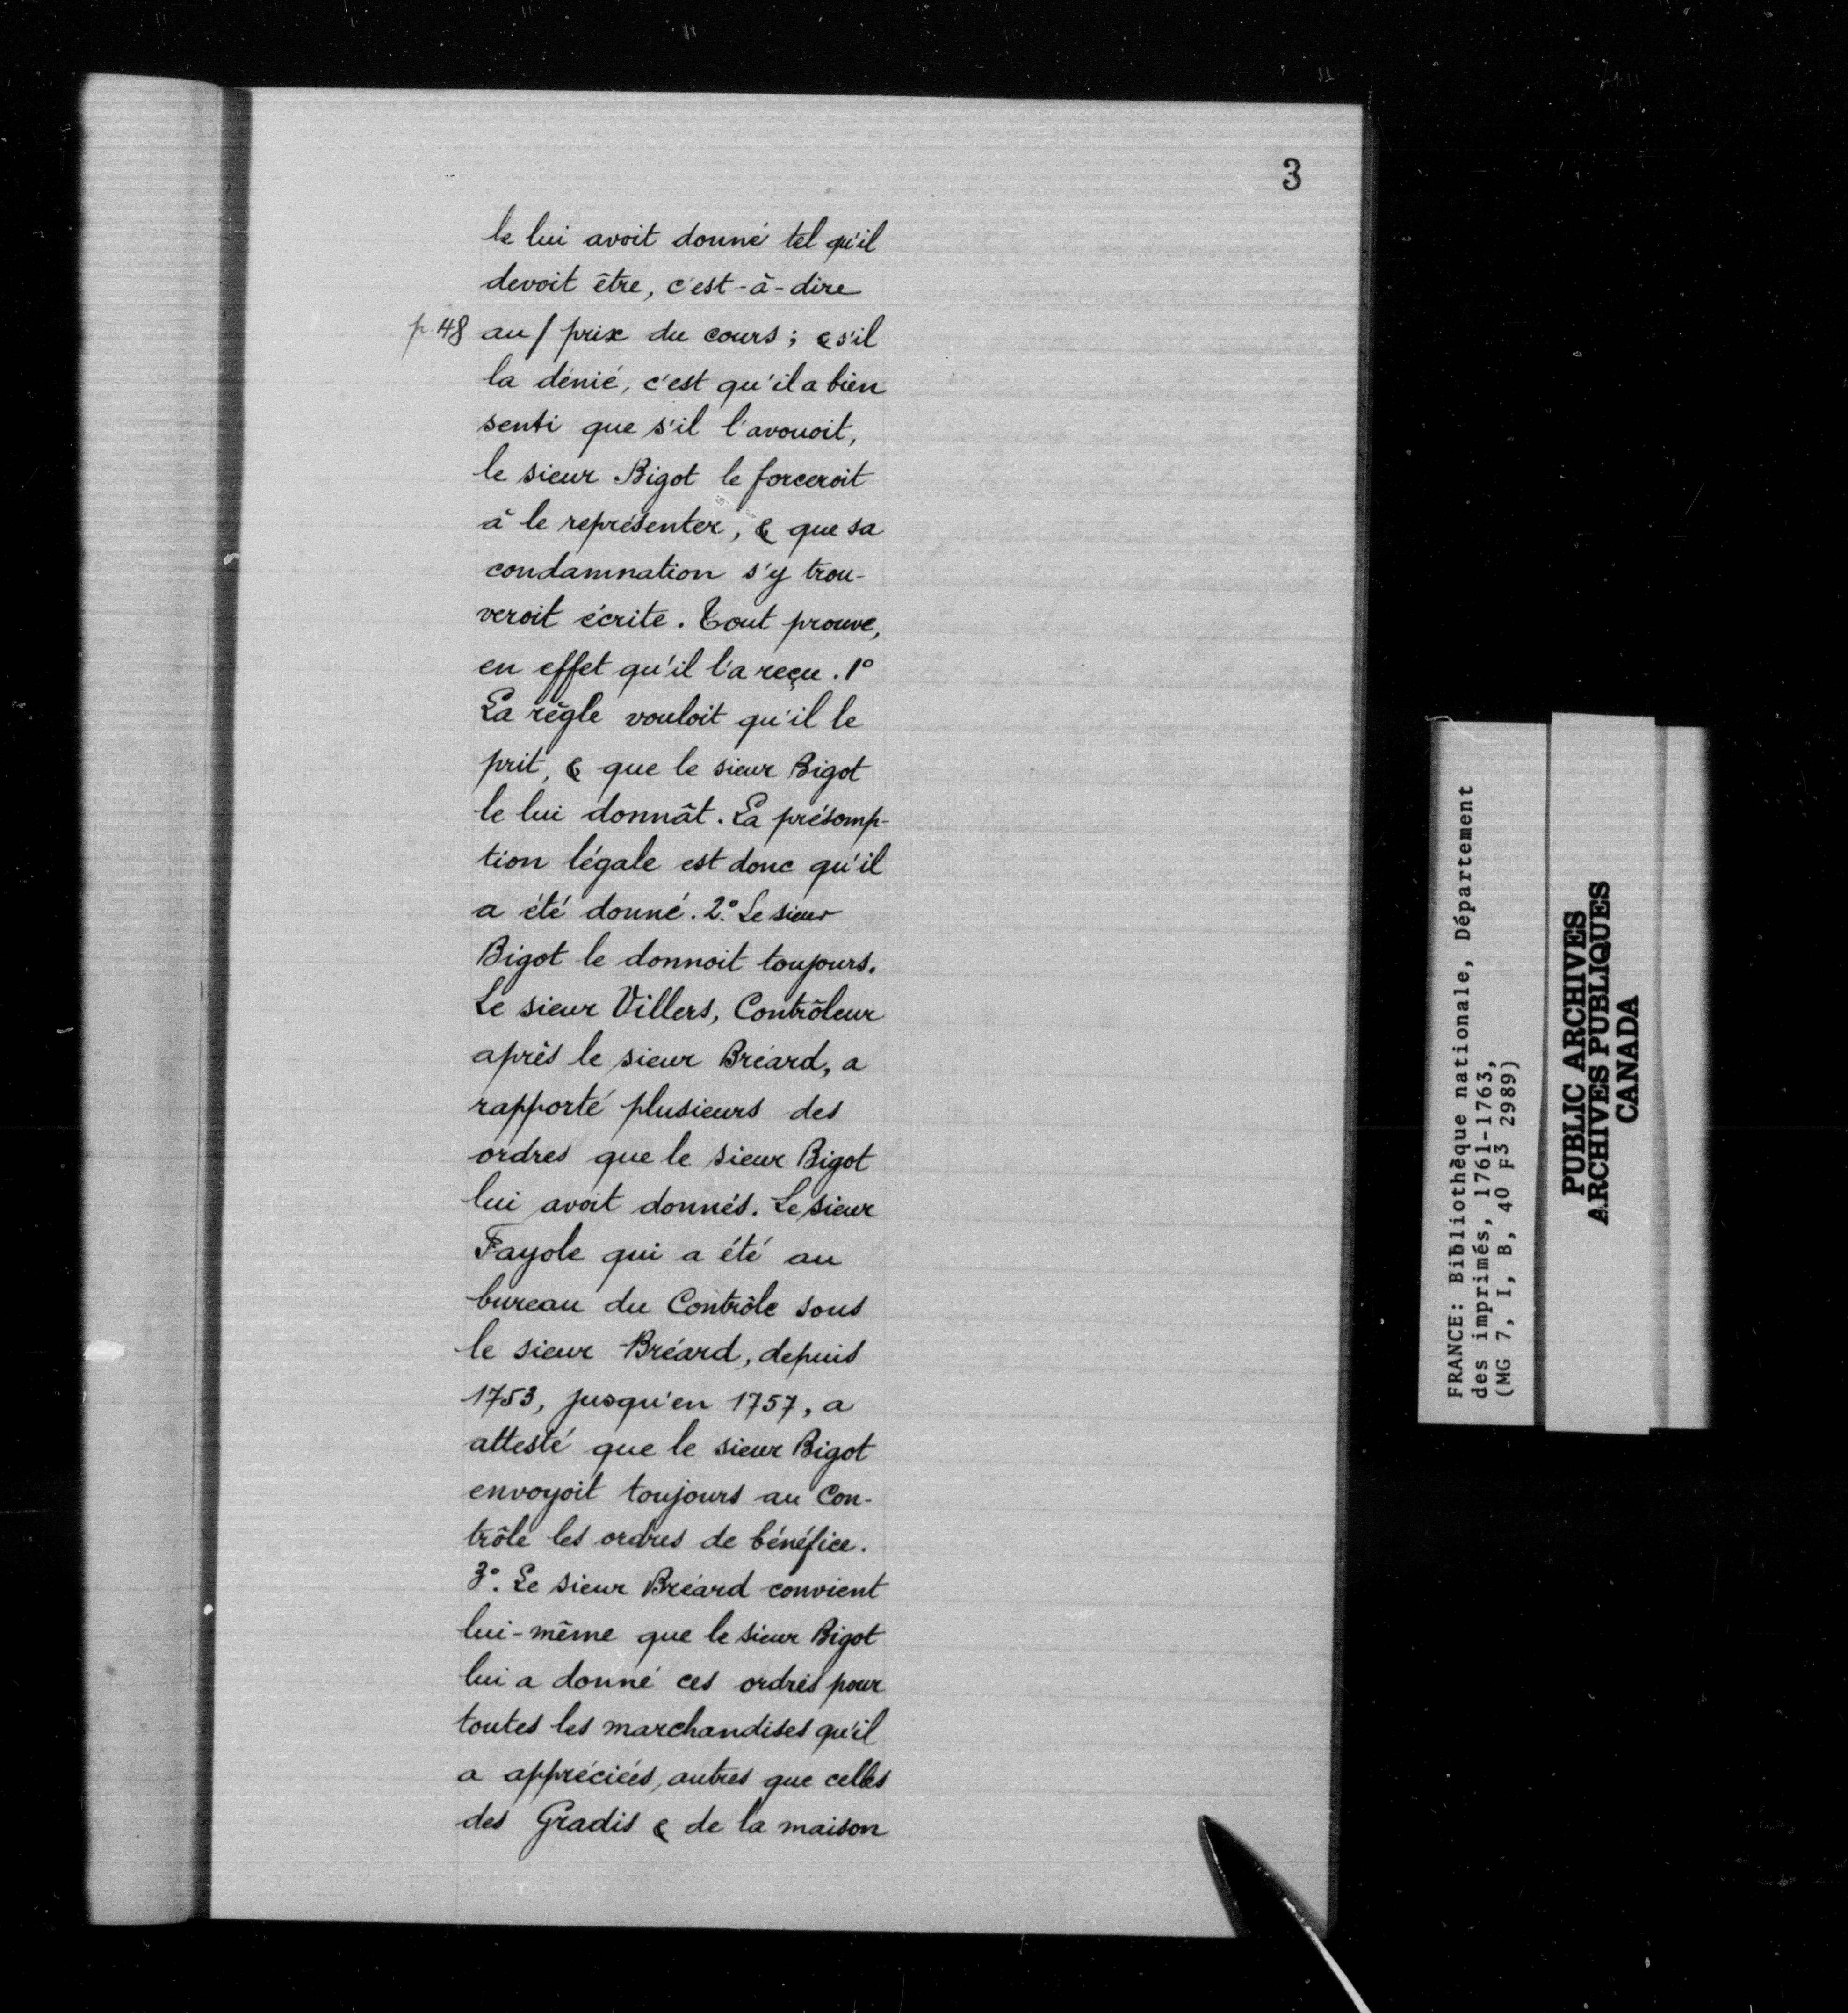 3
le lui avoit donné tel qu'il
devoit être, c'est-à-dire
p. 48 au / prix du cours ; & s'il
la dénié, c'est qu'il a bien
senti que s'il l'avouoit,
le sieur Bigot le forceroit
à le représenter, & que sa
condamnation s'y trou-
veroit écrite. Tout prouve,
en effet qu'il l'a reçu. 1°
La règle vouloit qu'il le
prit, & que le sieur Bigot
le lui donnât. La présomp-
tion légale est donc qu'il
a été donné. 2°. Le sieur
Bigot le donnoit toujours.
Le sieur Villers, Contrôleur
après le sieur Bréard, a
rapporté plusieurs des
ordres que le sieur Bigot
lui avoit donnés. Le sieur
Fayole qui a été au
bureau du Contrôle sous
le sieur Bréard, depuis
1753, jusqu'en 1757, a
attesté que le sieur Bigot
envoyoit toujours au Con-
trôle les ordres de bénéfice.
3°. Le sieur Bréard convient
lui-même que le sieur Bigot
lui a donné ces ordres pour
toutes les marchandises qu'il
a appréciées, autres que celles
des Gradis & de la maison
FRANCE: Bibliothèque nationale, Département
des imprimés, 1761-1763,
(MG 7, I, B, 40 F3 2989)
PUBLIC ARCHIVES
ARCHIVES PUBLIQUES
CANADA